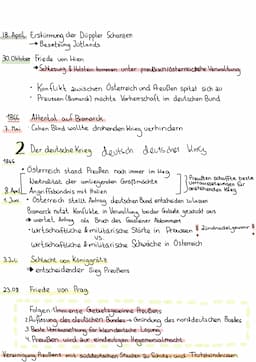 18. April Erstürmung der Düppler Schanzen
→ Besetzung Jütlands
30. Oktober Friede von Wien
→ Schleswig & Holstein kommen unter preußisch/österreichische Verwaltung
• Konflikt zwischen Österreich und Preußen spitzt sich zu
• Preussen (Bismarck) möchte Vorherrschaft im deutschen Bund
1866 Attentat auf Bismarck
7. Mai Cohen Blind wollte drohenden Krieg verhindern
2 Der deutsche Krieg deutsch deutscher Krieg
1866
• Österreich stand Preußen noch immer im Weg
• Neutralität der umliegenden Großmächte
Preußen schaffte beste Voraussetzungen für
8. April Angriffsbündnis mit Italien
1. Juni • Österreich stellt Antrag, deutschen Bund entscheiden
Bismarck nutzt Konflikte in Verwaltung beider Gebiete
→ wertet Antrag als Bruch des Gasteiner Abkommen
• wirtschaftliche & militärische Stärke in Preussen
vs.
wirtschaftliche & militärische Schwäche in Österreich
3. Juli Schlacht von Königgrätz
→ entscheidender Sieg Preußens
23.08 Friede von Prag
Folgen: 1. immense Gebietsgewinne Preußens
2. Auflösung des deutschen Bundes → Gründung des norddeutschen Bundes
3. Beste Voraussetzung für kleindeutsche Lösung
4. Preußen wird zur eindeutigen Hegemonialmacht
Vereinigung Preußens mit süddeutschen Staaten zu Schutz- und Trutzbündnissen